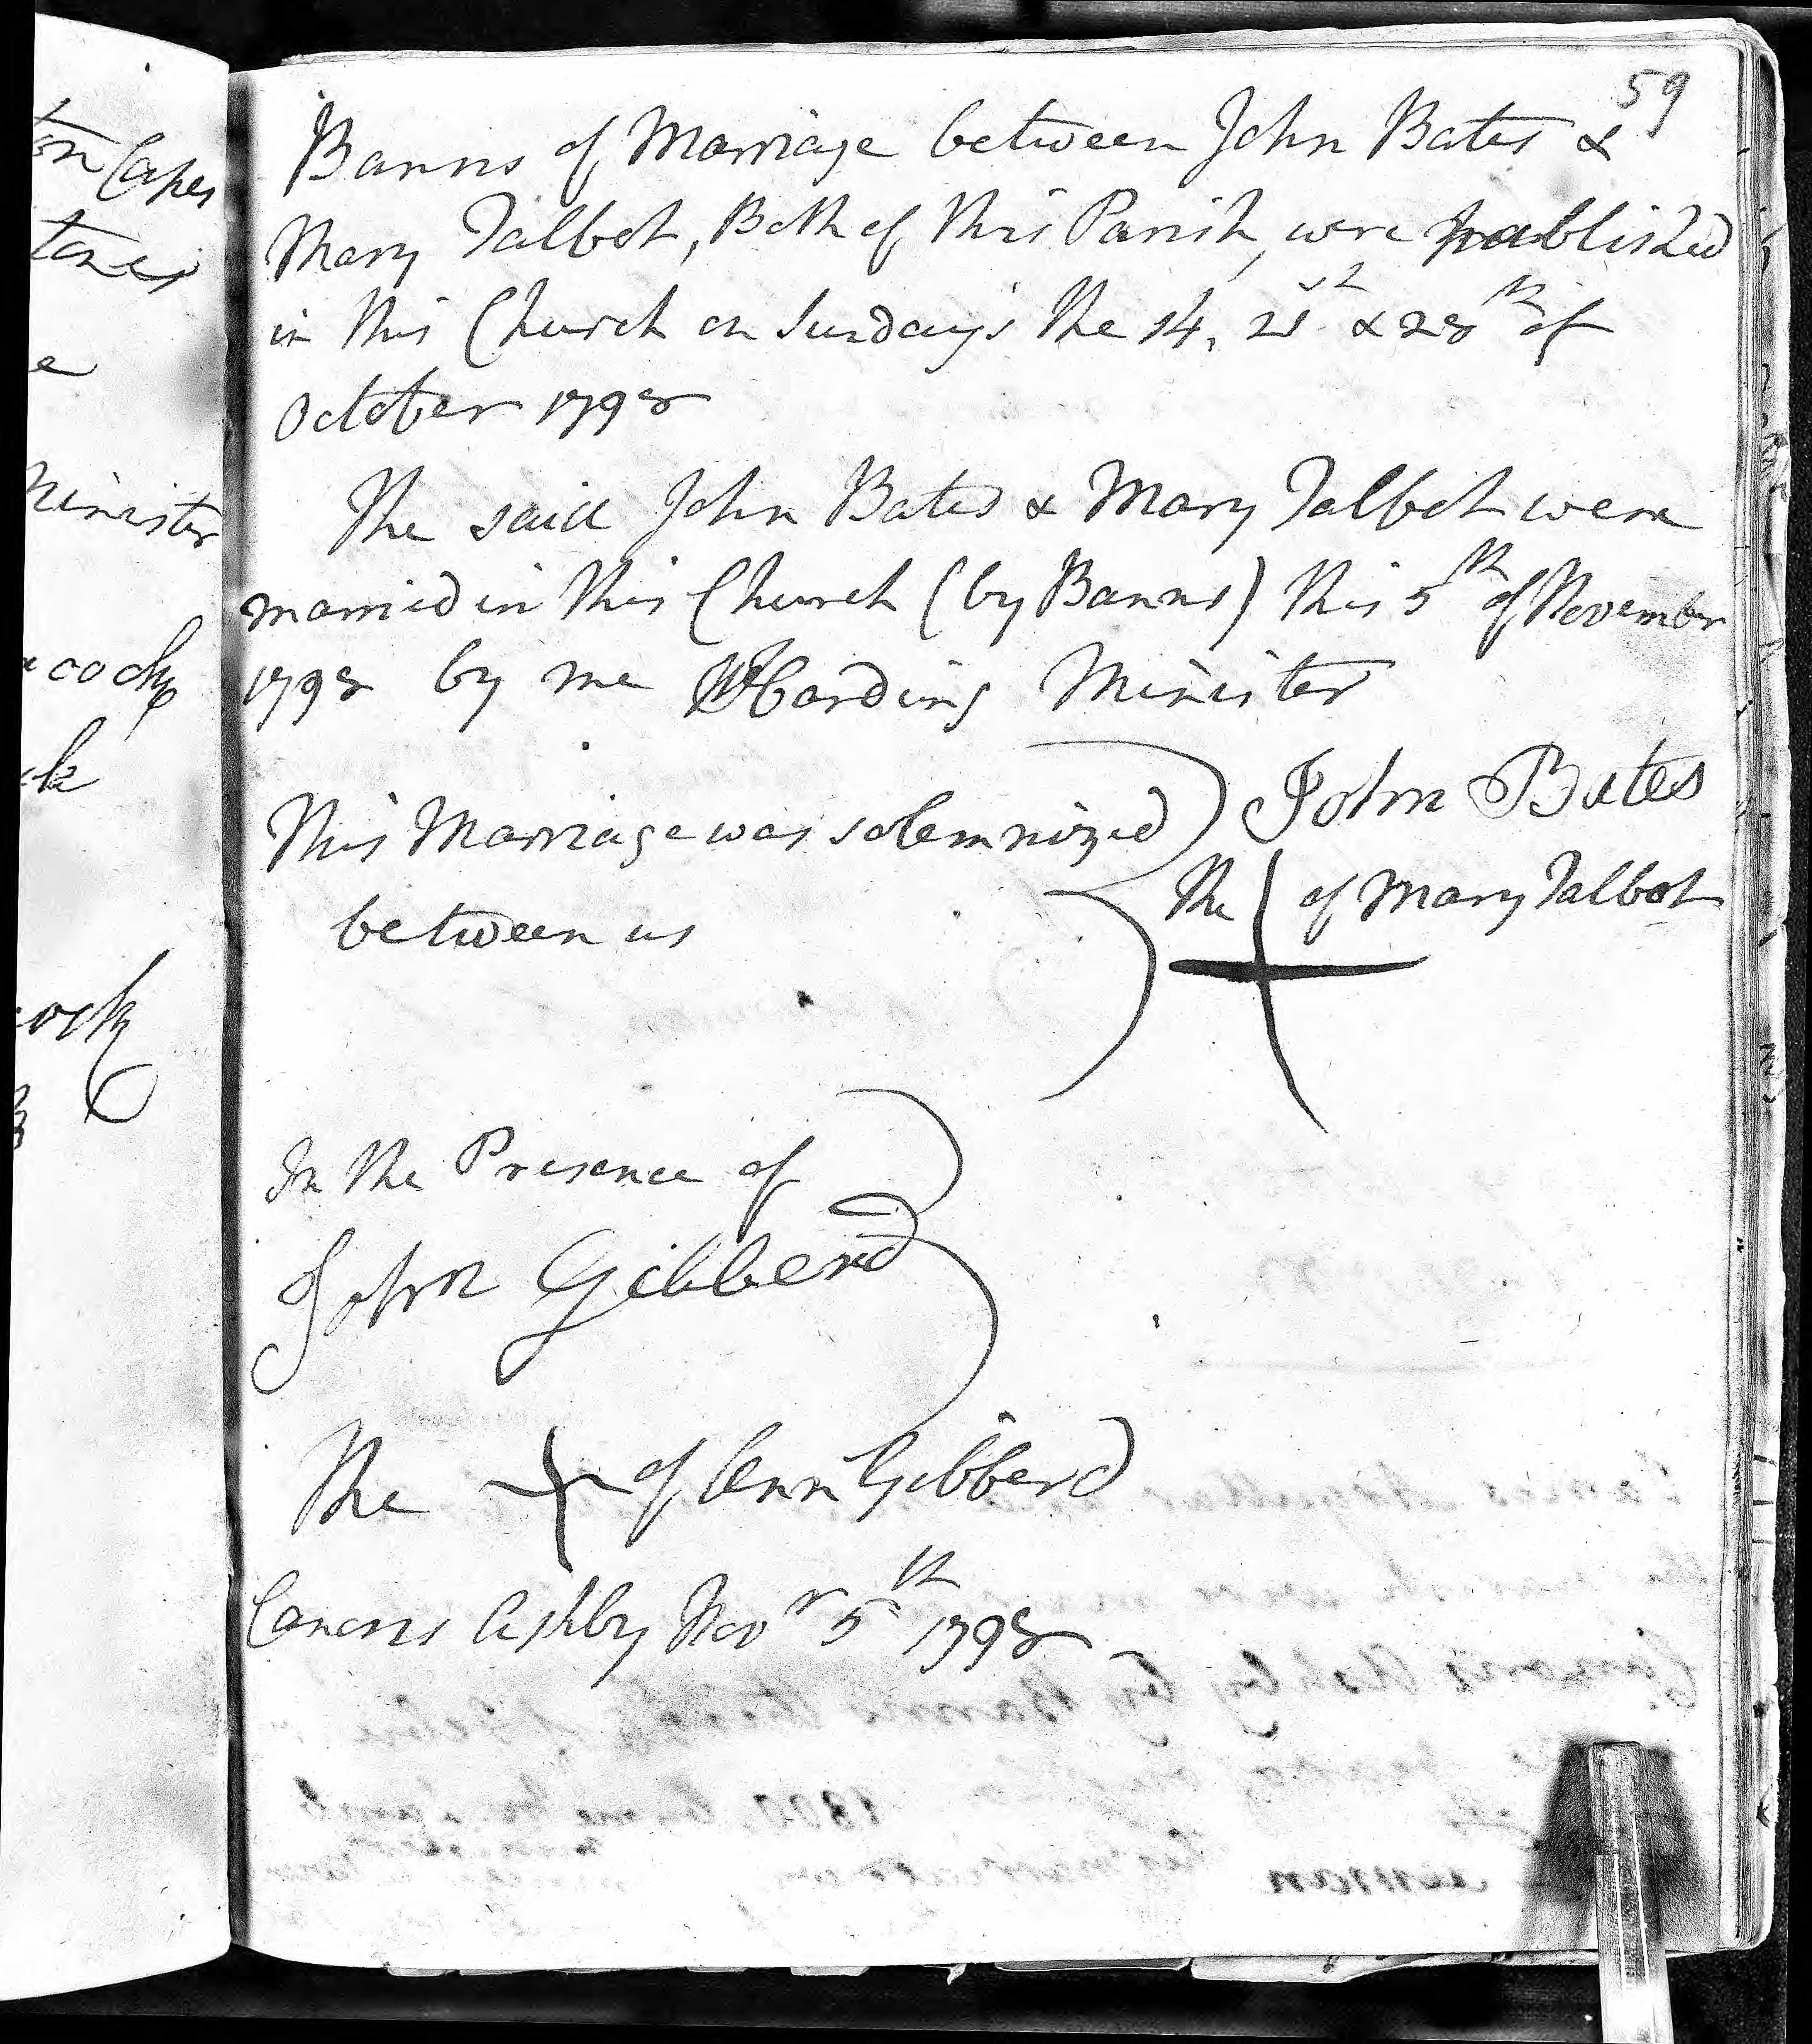 59
Banns of Marriage between John Bates &
Mary Talbot, Both of this Parish, were published
in this Church on Sunday's the 14, 21st & 28th of
October 1798
The said John Bates & Mary Talbot were
married in this Church (by Banns) this 5th of November
1798 by me Harding Minister
This Marriage was solemnized
between us
John Bates
The of Mary Talbot
In the Presence of
John Gibberd
The of Ann Gibberd
Canons Ashby Novr 5th 1798
Capes
Minister